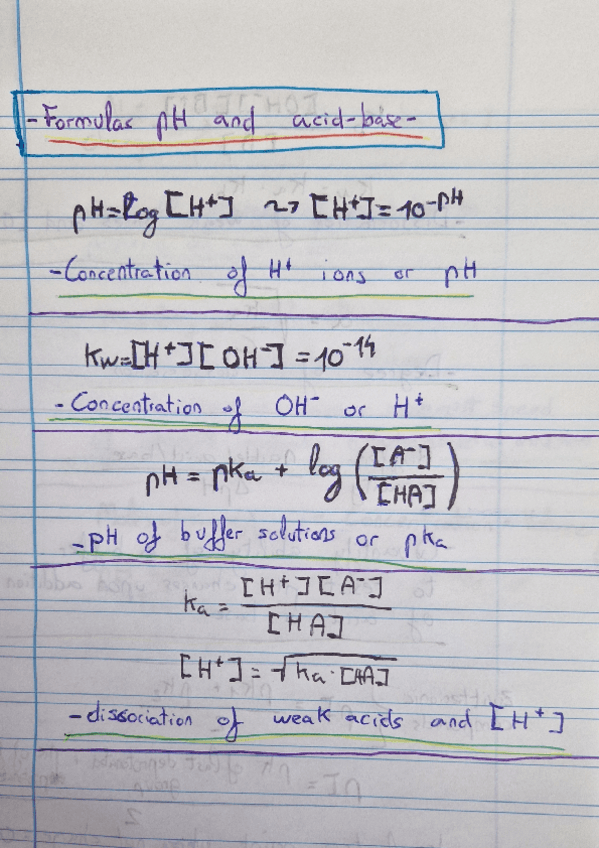 -Formulas pH and acid-base-
pH=log [H⁺] ⤳ [H⁺]=10⁻ᵖᴴ
-Concentration of H⁺ ions or pH
Kw=[H⁺][OH⁻]=10⁻¹⁴
-Concentration of OH⁻ or H⁺
pH = pKa + log ([A⁻]/[HA])
-pH of buffer solutions or pKa
Ka = [H⁺][A⁻]/[HA]
[H⁺]=√Ka·[HA]
-dissociation of weak acids and [H⁺]